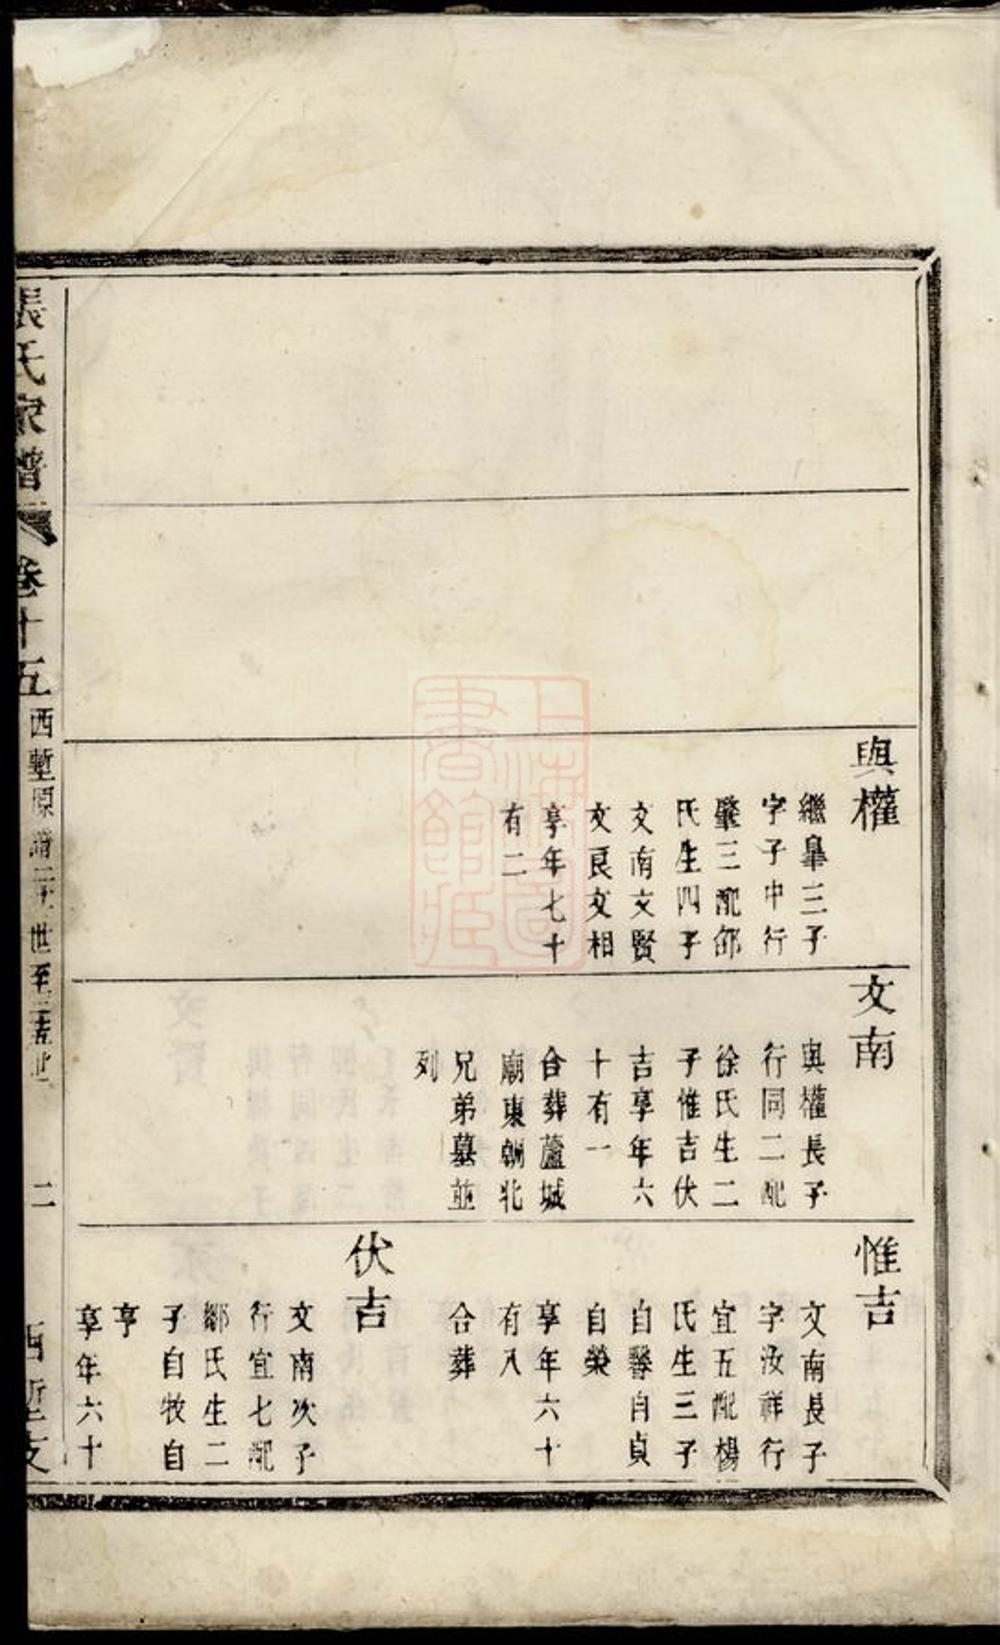 與權
繼皐三子
字子中行
肇三配邵
氏生四子
文南文賢
文良文相
享年七十
有二
文南
與權長子
行同二配
徐氏生二
子惟吉伏
吉享年六
十有一
合葬蘆城
廟東朝北
兄弟墓並
列
惟吉
文南長子
字汝祥行
宜五配楊
氏生三子
自馨自貞
自榮
享年六十
有八
合葬
伏吉
文南次子
行宜七配
鄒氏生二
子自牧自
亨
享年六十
張氏家譜
卷十五
西塹原譜二十世至三十五世
二
西塹支
上海圖書館藏